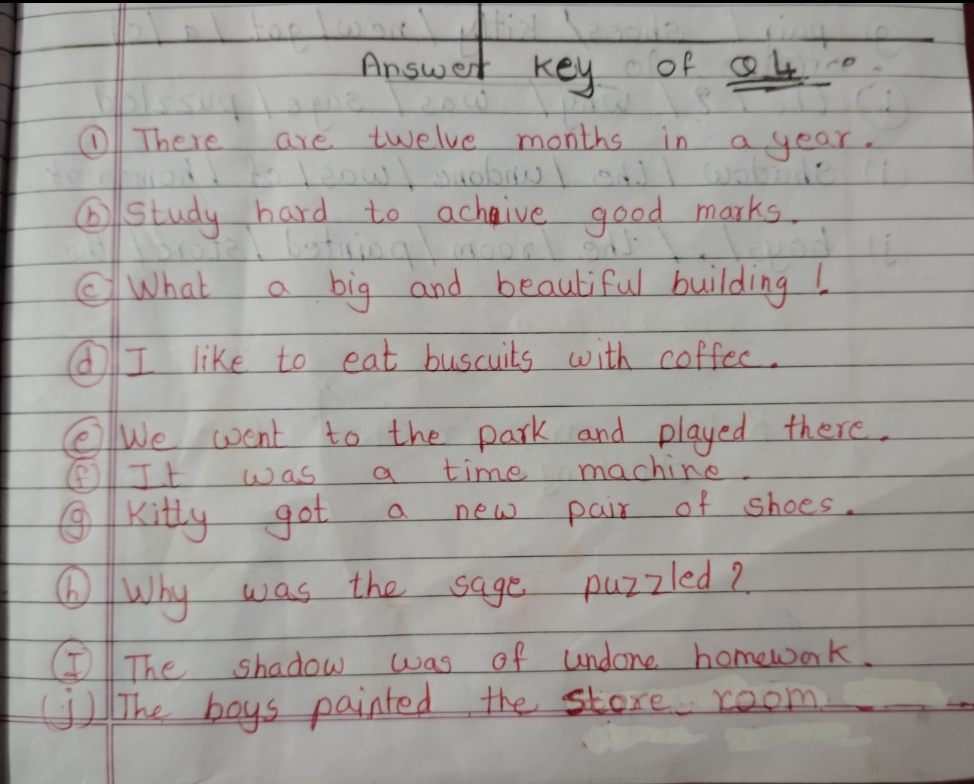 Answer key of Q4
① There are twelve months in a year.
ⓑ Study hard to achaive good marks.
ⓒ What a big and beautiful building!
ⓓ I like to eat buscuits with coffee.
ⓔ We went to the park and played there.
ⓕ It was a time machine.
ⓖ Kitty got a new pair of shoes.
ⓗ Why was the sage puzzled?
Ⓘ The shadow was of undone homework.
(j) The boys painted the store room